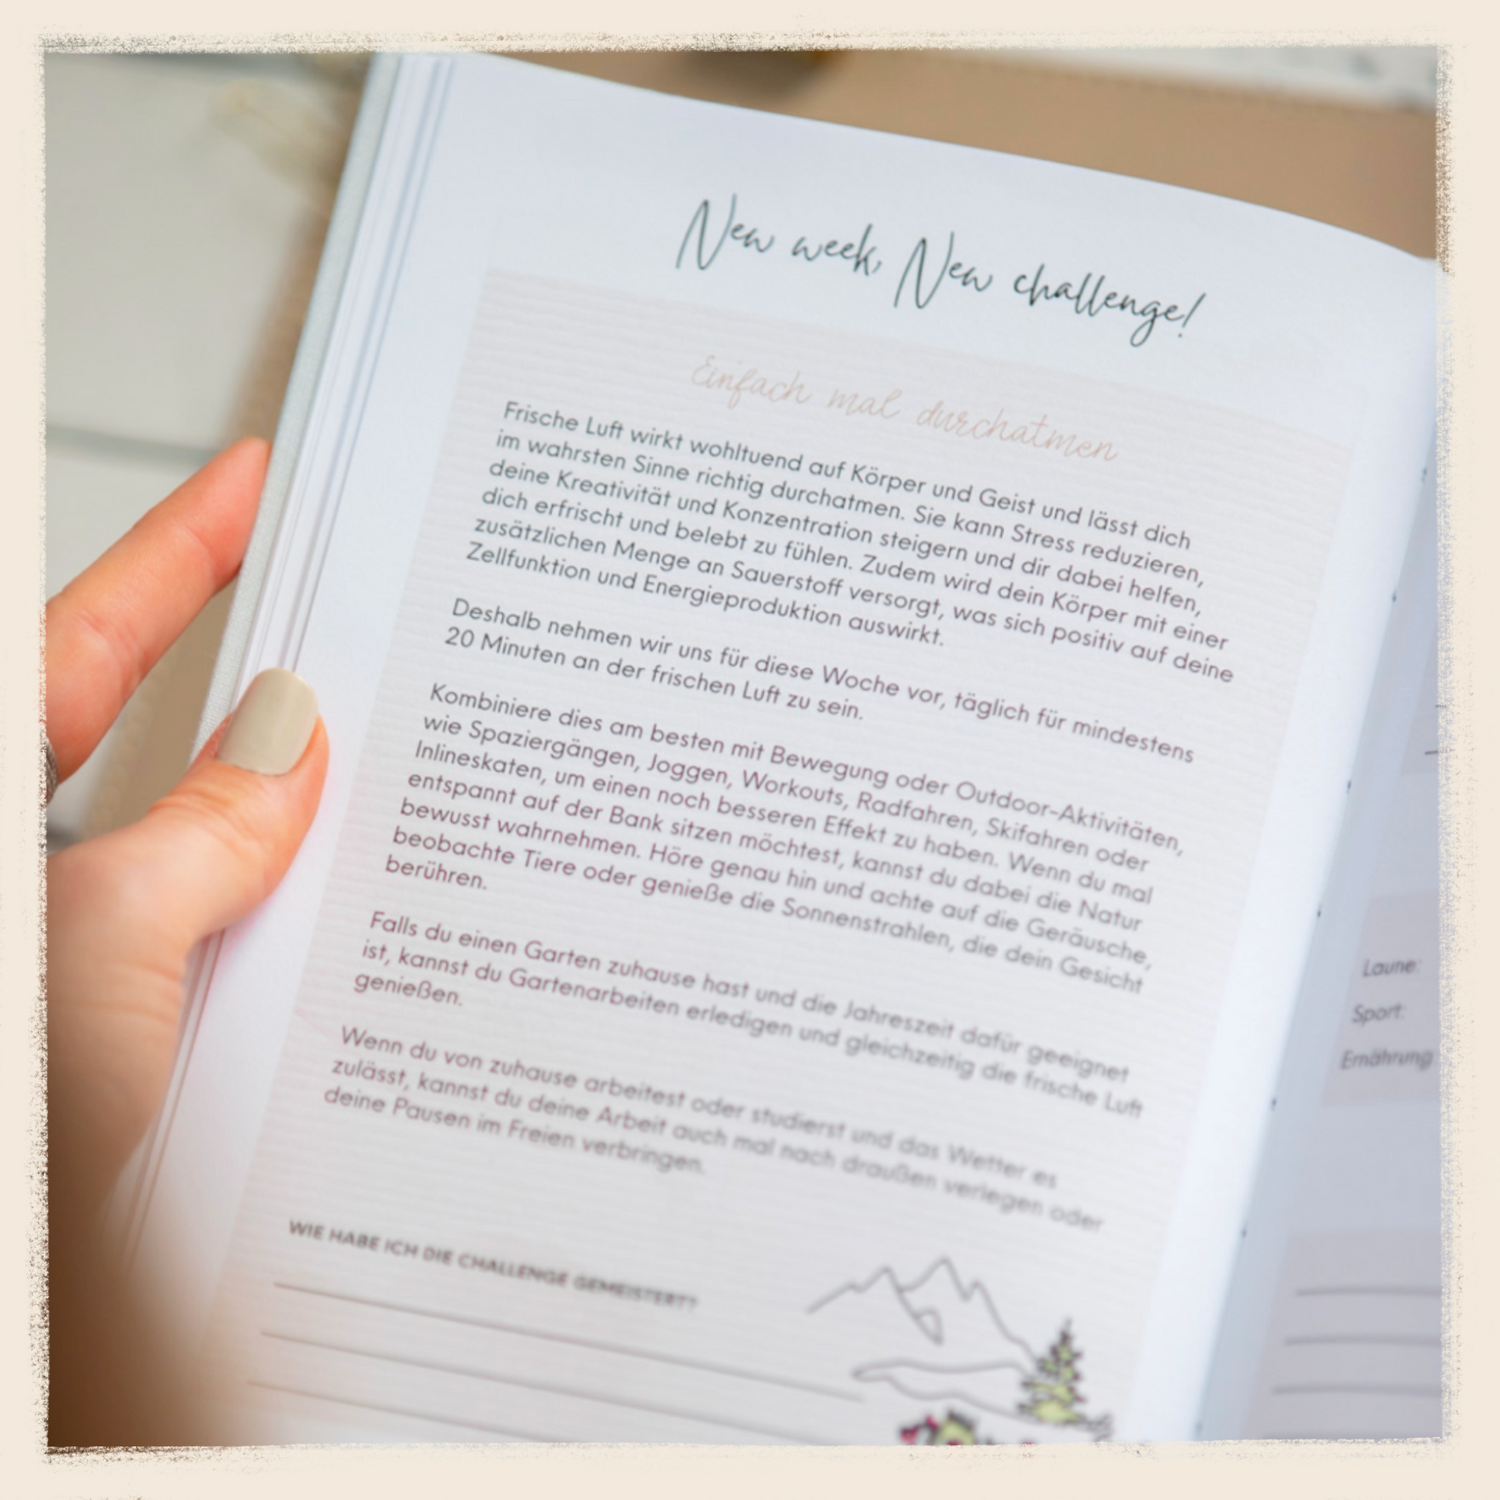 New week, New challenge!
Einfach mal durchatmen
Frische Luft wirkt wohltuend auf Körper und Geist und lässt dich
im wahrsten Sinne richtig durchatmen. Sie kann Stress reduzieren,
deine Kreativität und Konzentration steigern und dir dabei helfen,
dich erfrischt und belebt zu fühlen. Zudem wird dein Körper mit einer
zusätzlichen Menge an Sauerstoff versorgt, was sich positiv auf deine
Zellfunktion und Energieproduktion auswirkt.
Deshalb nehmen wir uns für diese Woche vor, täglich für mindestens
20 Minuten an der frischen Luft zu sein.
Kombiniere dies am besten mit Bewegung oder Outdoor-Aktivitäten,
wie Spaziergängen, Joggen, Workouts, Radfahren, Skifahren oder
Inlineskaten, um einen noch besseren Effekt zu haben. Wenn du mal
entspannt auf der Bank sitzen möchtest, kannst du dabei die Natur
bewusst wahrnehmen. Höre genau hin und achte auf die Geräusche,
beobachte Tiere oder genieße die Sonnenstrahlen, die dein Gesicht
berühren.
Falls du einen Garten zuhause hast und die Jahreszeit dafür geeignet
ist, kannst du Gartenarbeiten erledigen und gleichzeitig die frische Luft
genießen.
Wenn du von zuhause arbeitest oder studierst und das Wetter es
zulässt, kannst du deine Arbeit auch mal nach draußen verlegen oder
deine Pausen im Freien verbringen.
WIE HABE ICH DIE CHALLENGE GEMEISTERT?
Laune:
Sport:
Ernährung